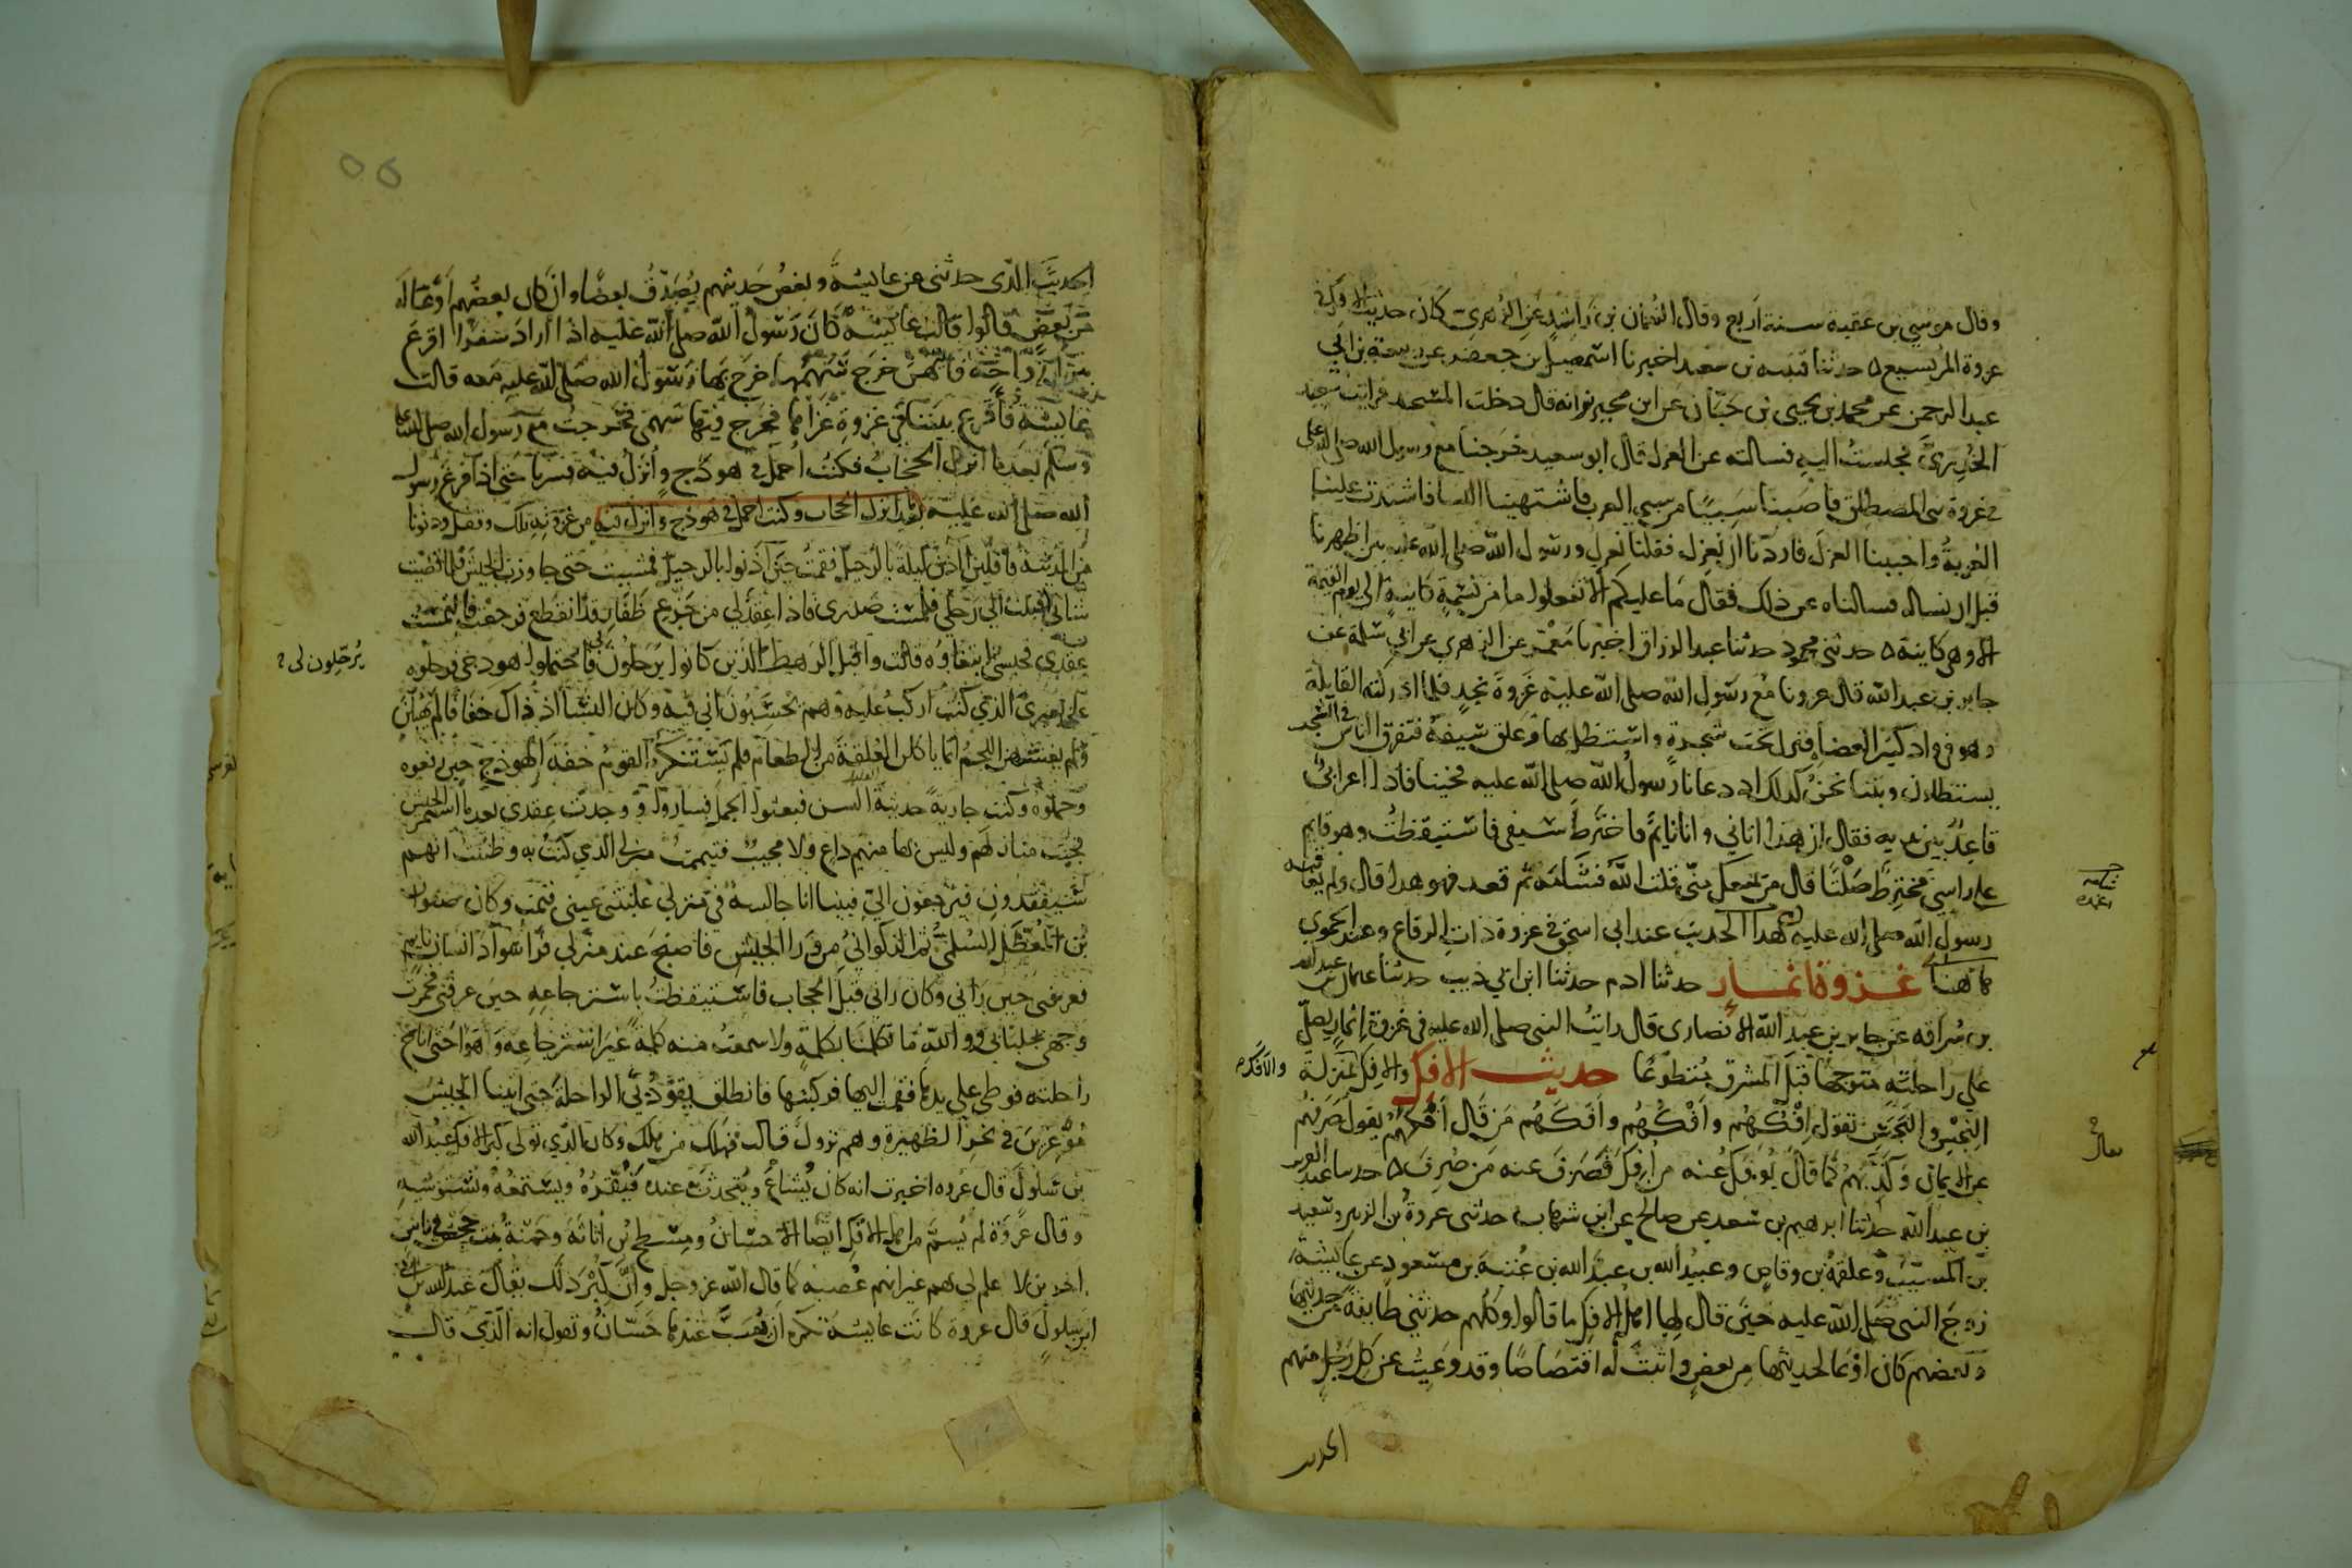 وقال موسي بن عقبة سنة اربع وقال النعمان بن راشد عن الزهري كان حديث الافك في
غزوة المريسيع ه حدثنا قتيبه بن سعيد اخبرنا اسمعيل بن جعفر عن ربيعة بن ابي
عبد الرحمن عن محمد بن يحيى بن حبان عن ابن محيريز انه قال دخلت المسجد فرايت ابا سعيد
الخدري فجلست اليه فسالته عن العزل قال ابو سعيد خرجنا مع رسول الله صلى الله عليه
في غزوة بني المصطلق فاصبنا سبيا من سبي العرب فاشتهينا النسا فاشتدت علينا
العزبة واحببنا العزل فاردنا ان نعزل فقلنا نعزل ورسول الله صلى الله عليه بين اظهرنا
قبل ان نساله فسالناه عن ذلك فقال ما عليكم الا تفعلوا ما من نسمة كاينة الى يوم القيمة
الا وهي كاينة ه حدثني محمود حدثنا عبد الرزاق اخبرنا معمر عن الزهري عن ابي سلمة عن
جابر بن عبد الله قال غزونا مع رسول الله صلى الله عليه غزوة نجد فلما ادركته القايلة
وهو في واد كثير العضاه فنزل تحت شجرة واستظل بها وعلق سيفه فتفرق الناس في الشجر
يستظلون وبينا نحن كذلك اذ دعانا رسول الله صلى الله عليه فجينا فاذا اعرابي
قاعد بين يديه فقال ان هذا اتاني وانا نايم فاخترط سيفي فاستيقظت وهو قايم
على راسي مخترط صلتا قال من يمنعك مني قلت الله فشامه ثم قعد فهو هذا قال ولم يعاقبه
رسول الله صلى الله عليه هذا الحديث عند ابي اسحق في غزوة ذات الرقاع وعند الحموي
كما هنا غزوة انمار حدثنا ادم حدثنا ابن ابي ذيب حدثنا عثمان بن عبد الله
بن سراقه عن جابر بن عبد الله الانصاري قال رايت النبي صلى الله عليه في غزوة انمار يصلي
على راحلته متوجها قبل المشرق متطوعا حديث الافك والافك بمنزلة
والافك
النجس والنجس تقول افكهم وافكهم وافكهم من قال افكهم يقول صرفهم
عن الايمان وكذبهم كما قال يوفك عنه من افك يصرف عنه من صرف ه حدثنا عبد العزيز
بن عبد الله حدثنا ابرهيم بن سعد عن صالح عن ابن شهاب حدثني عروة بن الزبير وسعيد
بن المسيب وعلقمة بن وقاص وعبيد الله بن عبد الله بن عتبة بن مسعود عن عايشة
زوج النبي صلى الله عليه حين قال لها اهل الافك ما قالوا وكلهم حدثني طايفة من حديثها
وبعضهم كان اوعا لحديثها من بعض واثبت له اقتصاصا وقد وعيت عن كل رجل منهم
الحديث
الحديث الذي حدثني عن عايشة وبعض حديثهم يصدق بعضا وان كان بعضهم اوعا له
من بعض قالوا قالت عايشة كان رسول الله صلى الله عليه اذا اراد سفرا اقرع
بين ازواجه فايهن خرج سهمها خرج بها رسول الله صلى الله عليه معه قالت
عايشة فاقرع بيننا في غزوة غزاها فخرج فيها سهمي فخرجت مع رسول الله صلى الله عليه
وسلم بعد ما انزل الحجاب فكنت احمل في هودج وانزل فيه فسرنا حتى اذا فرغ رسول
الله صلى الله عليه بعد ما انزل الحجاب وكنت احمل في هودج وانزل فيه من غزوته تلك وقفل ودنونا
من المدينة قافلين اذن ليلة بالرحيل فقمت حين اذنوا بالرحيل فمشيت حتى جاوزت الجيش فلما قضيت
شاني اقبلت الى رحلي فلمست صدري فاذا عقد لي من جزع ظفار قد انقطع فرجعت فالتمست
عقدي فحبسني ابتغاوه قالت واقبل الرهط الذين كانوا يرحلون لي فاحتملوا هودجي فرحلوه
يرحلون لي
على بعيري الذي كنت اركب عليه وهم يحسبون اني فيه وكان النسا اذ ذاك خفافا لم يهبلن
ولم يغشهن اللحم انما ياكلن العلقة من الطعام فلم يستنكر القوم خفة الهودج حين رفعوه
وحملوه وكنت جارية حديثة السن فبعثوا الجمل فساروا ووجدت عقدي بعد ما استمر الجيش
فجيت منازلهم وليس بها منهم داع ولا مجيب فتيممت منزلي الذي كنت به وظننت انهم
سيفقدوني فيرجعون الي فبينا انا جالسة في منزلي غلبتني عيني فنمت وكان صفوان
بن المعطل السلمي ثم الذكواني من ورا الجيش فاصبح عند منزلي فراى سواد انسان نايم
فعرفني حين راني وكان راني قبل الحجاب فاستيقظت باسترجاعه حين عرفني فخمرت
وجهي بجلبابي ووالله ما تكلمنا بكلمة ولا سمعت منه كلمة غير استرجاعه وهوا حتى اناخ
راحلته فوطي على يدها فقمت اليها فركبتها فانطلق يقود بي الراحلة حتى اتينا الجيش
موغرين في نحر الظهيرة وهم نزول قالت فهلك من هلك وكان الذي تولى كبر الافك عبد الله
بن سلول قال عروه اخبرت انه كان يشاع ويتحدث به عنده فيقره ويستمعه ويستوشيه
وقال عروة لم يسم من اهل الافك ايضا الا حسان ومسطح بن اثاثة وحمنة بنت جحش في ناس
اخرين لا علم لي بهم غير انهم عصبة كما قال الله عز وجل وان كبر ذلك يقال عبد الله بن ابي
ابن سلول قال عروة كانت عايشة تكره ان يسب عندها حسان وتقول انه الذي قال